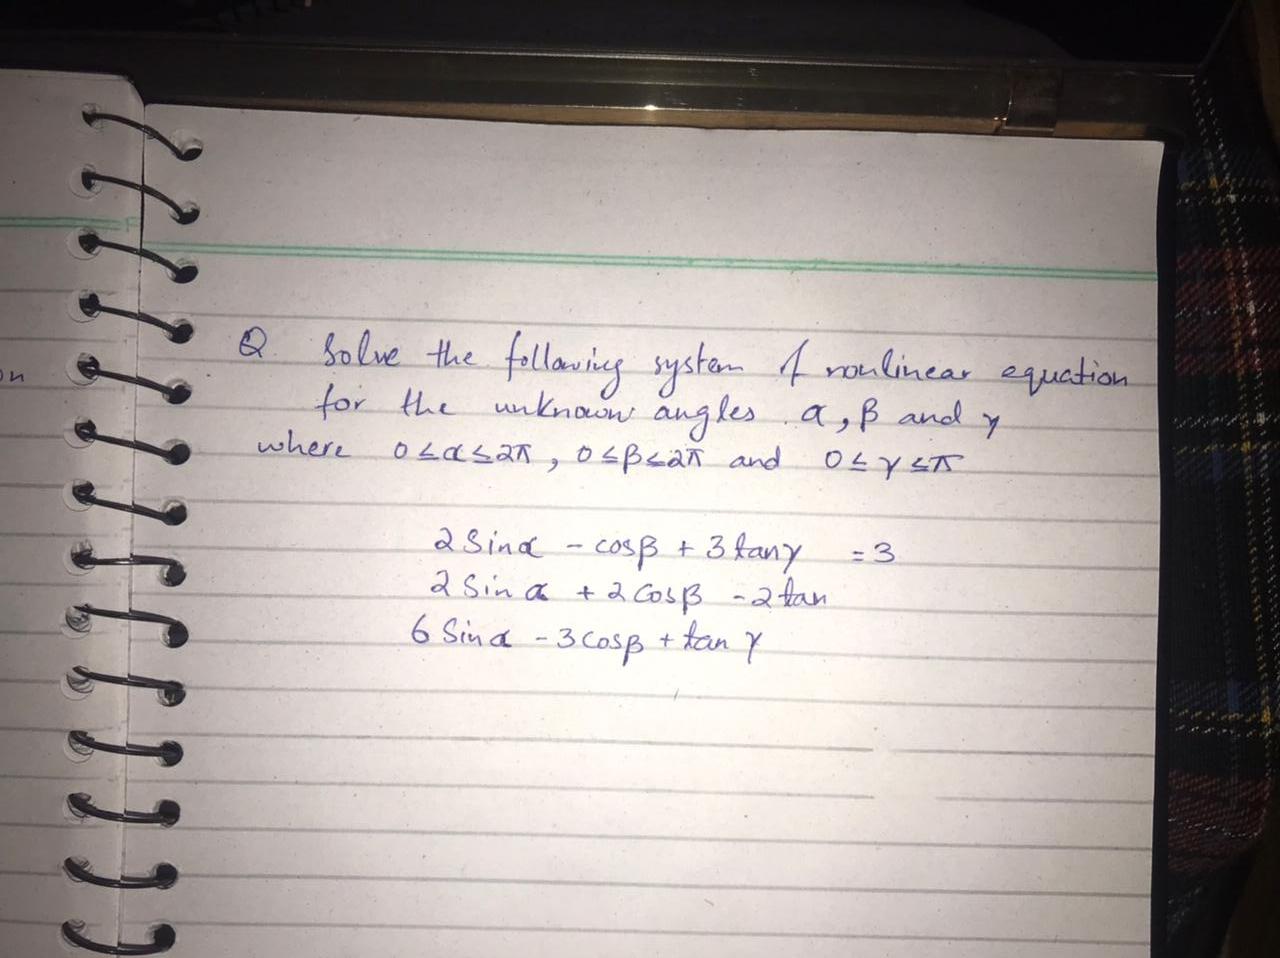 on
Q. Solve the following system of nonlinear equation
for the unknown angles α, β and γ
where 0≤α≤2π, 0≤β≤2π and 0≤γ≤π
2 Sinα - cosβ + 3 tanγ = 3
2 Sin α + 2 Cosβ - 2 tan
6 Sinα - 3 cosβ + tan γ